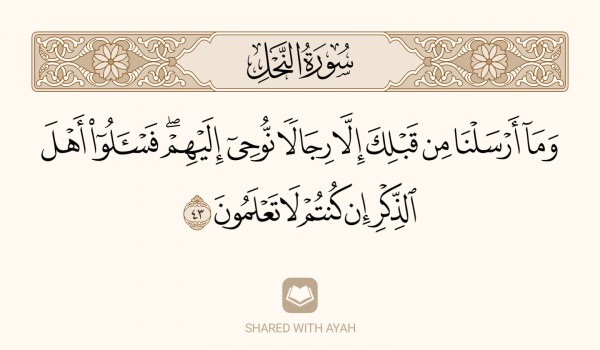 سُورَةُ النَّحۡلِ
وَمَآ أَرۡسَلۡنَا مِن قَبۡلِكَ إِلَّا رِجَالٗا نُّوحِيٓ إِلَيۡهِمۡۖ فَسۡـَٔلُوٓاْ أَهۡلَ
ٱلذِّكۡرِ إِن كُنتُمۡ لَا تَعۡلَمُونَ ٤٣
SHARED WITH AYAH